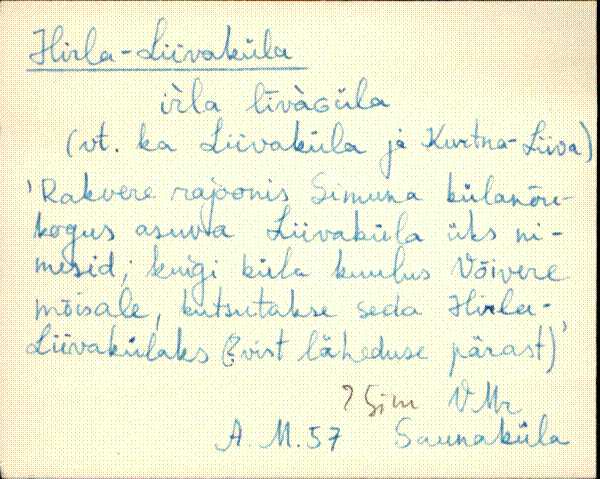 Hirla-Liivaküla
ìrla līvàɢüla
(vt. ka Liivaküla ja Kurtna-Liiva)
'Rakvere rajoonis Simuna külanõu-
kogus asuva Liivaküla üks ni-
mesid; kuigi küla kuulus Võivere
mõisale, kutsutakse seda Hirla-
Liivakülaks (?vist läheduse pärast)'
? Sim VMr
A. M. 57 Saunaküla